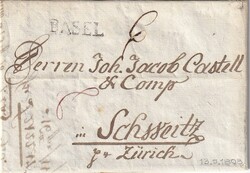 BASEL
Herren Joh. Jacob Castell
& Comp
in Schweitz
pr Zürich.